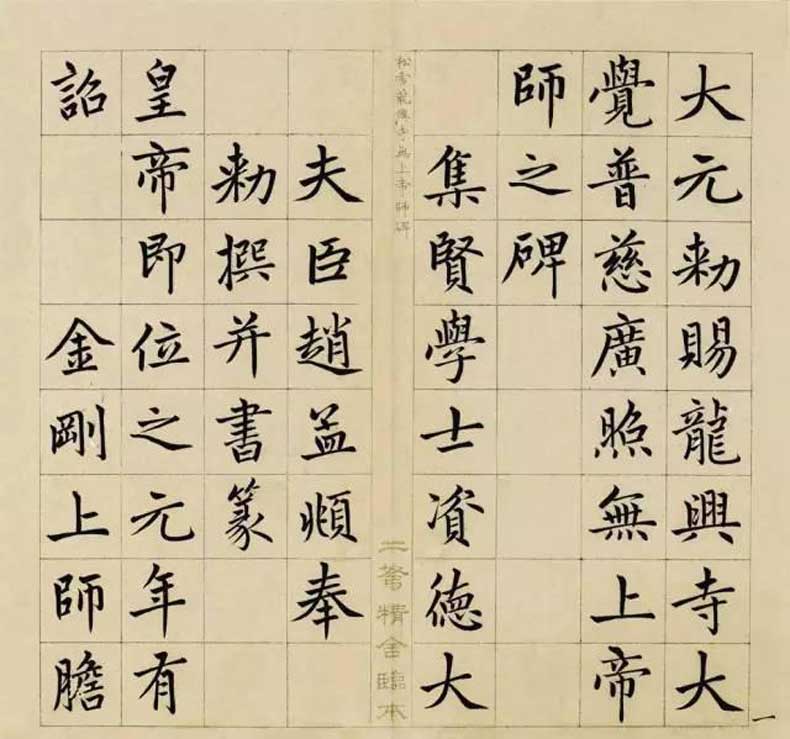 大元勅賜龍興寺大
覺普慈廣照無上帝
師之碑
集賢學士資德大
松雪龍興寺無上帝師碑
二精舍臨本
夫臣趙孟頫奉
勅撰并書篆
皇帝即位之元年有
詔金剛上師膽
一